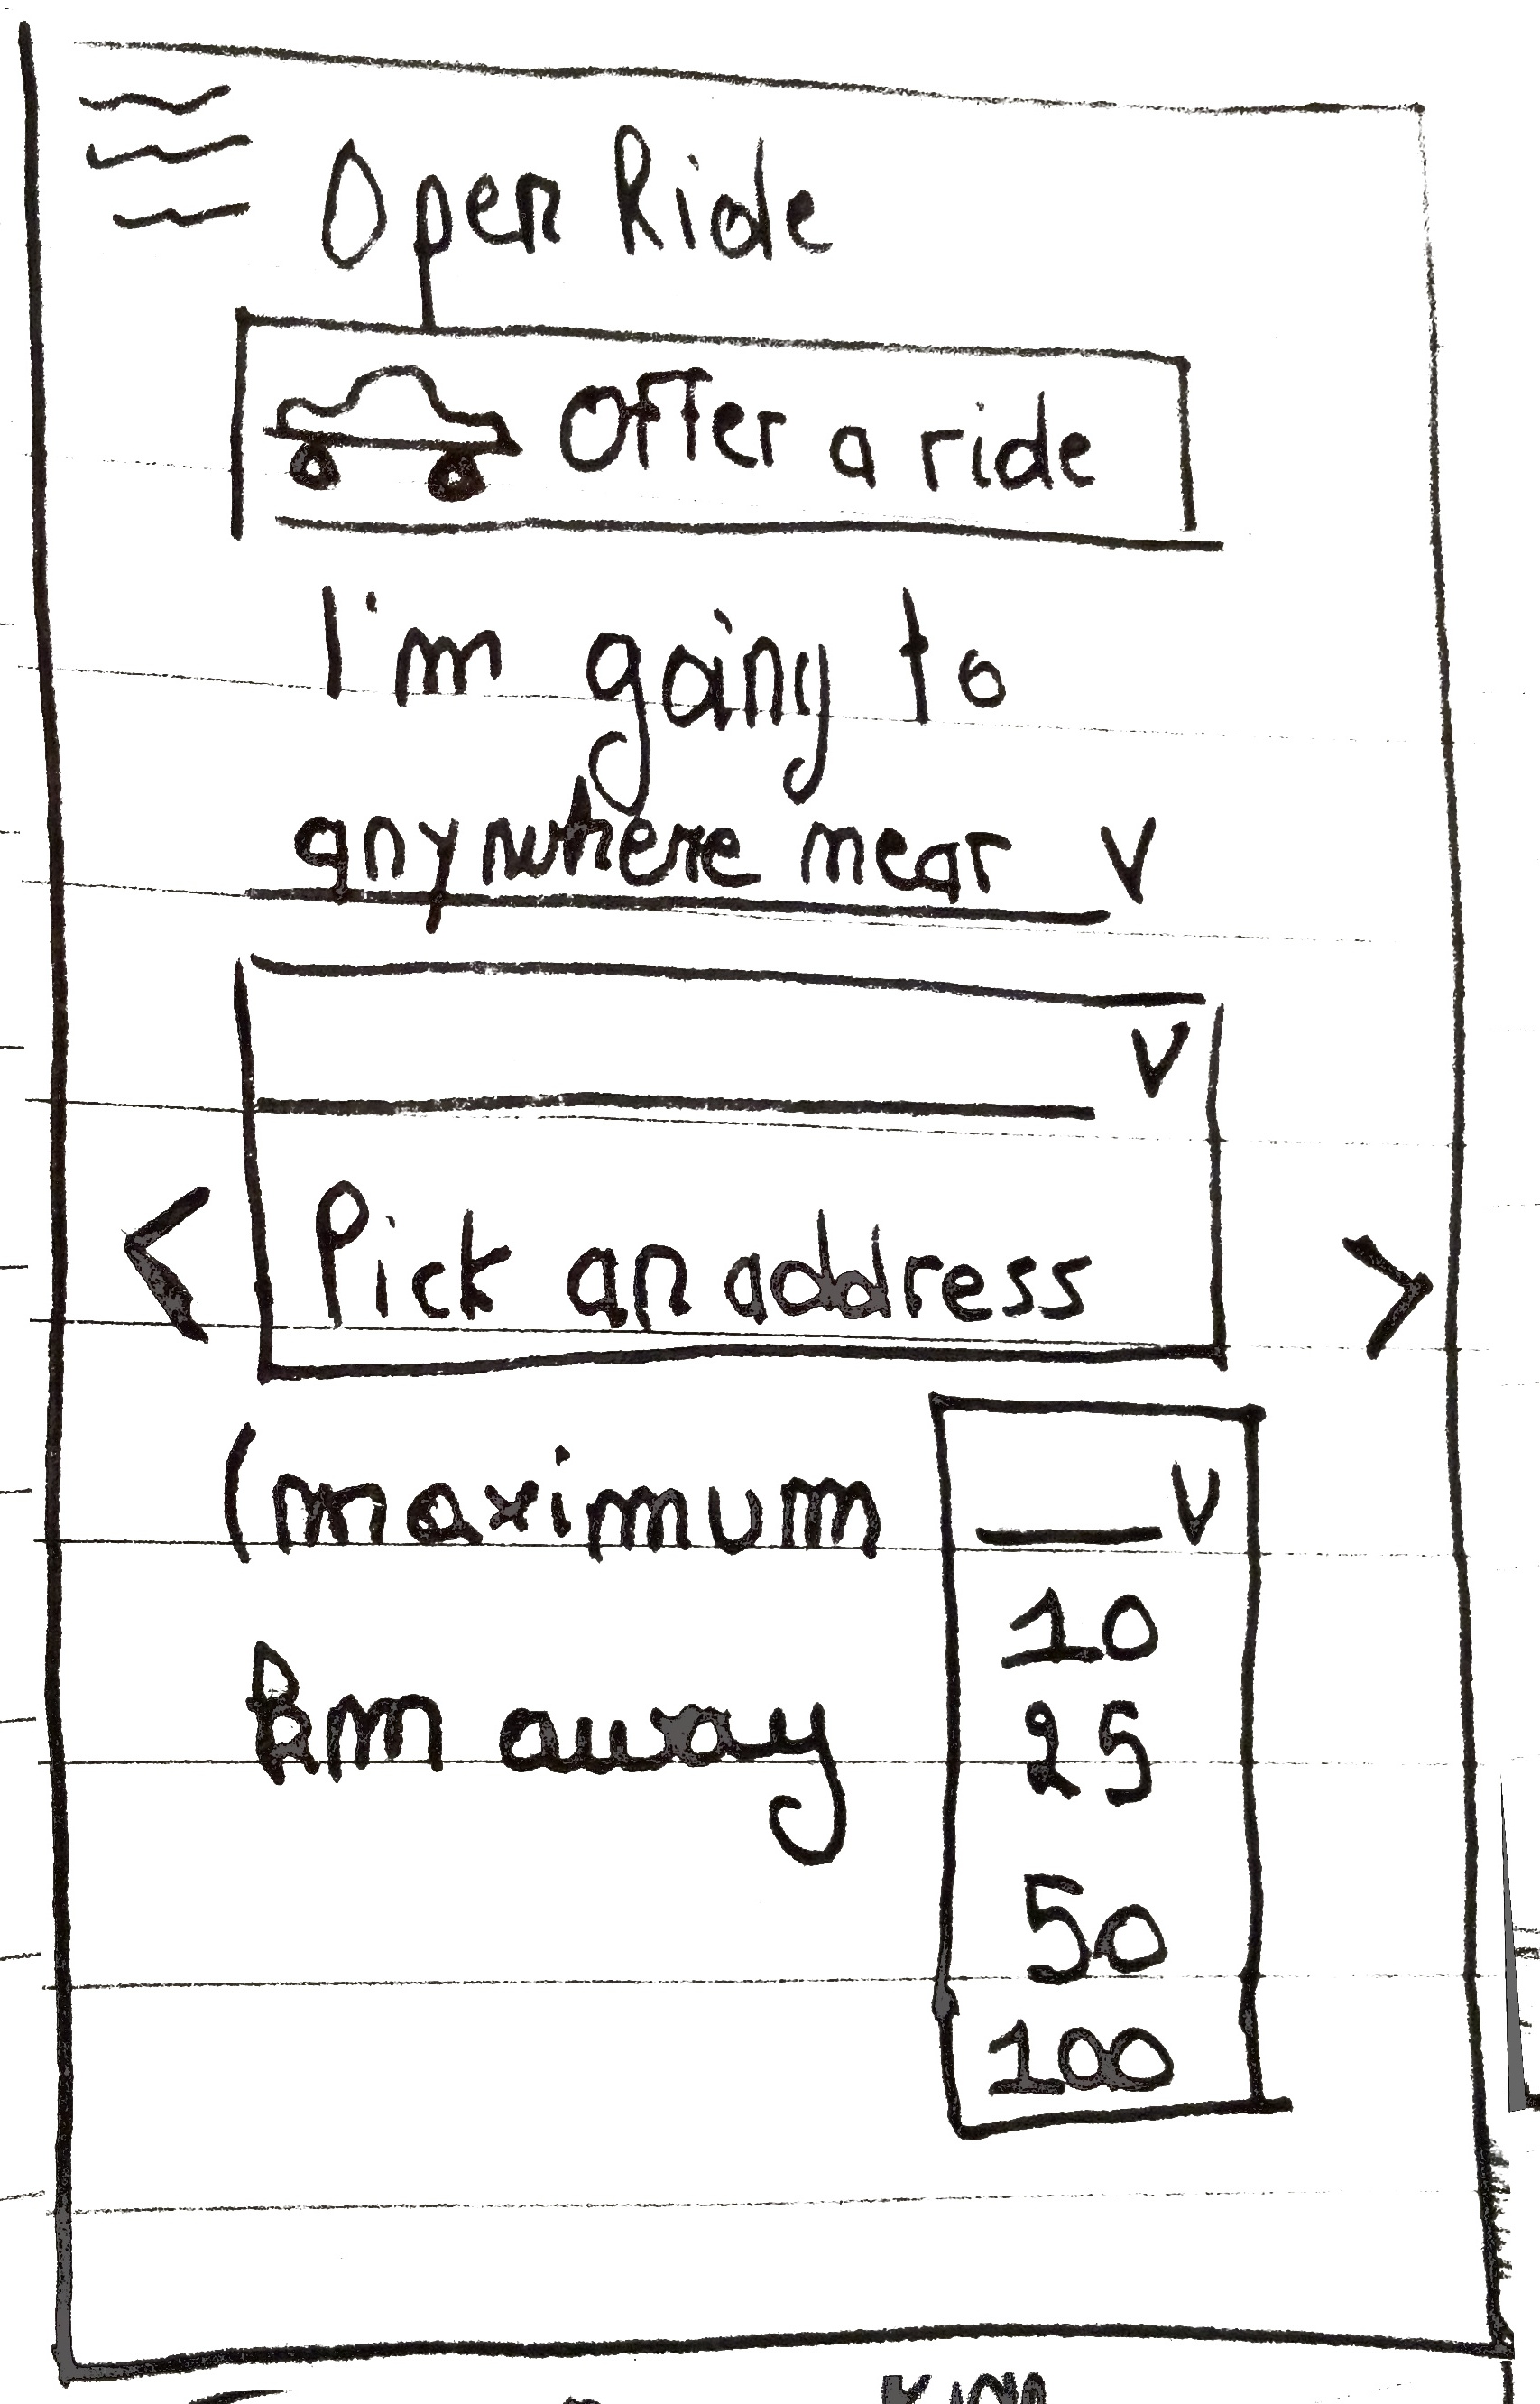 Open Ride
Offer a ride
I'm going to
anywhere near V
V
< Pick an address >
(maximum V
10
km away 25
50
100